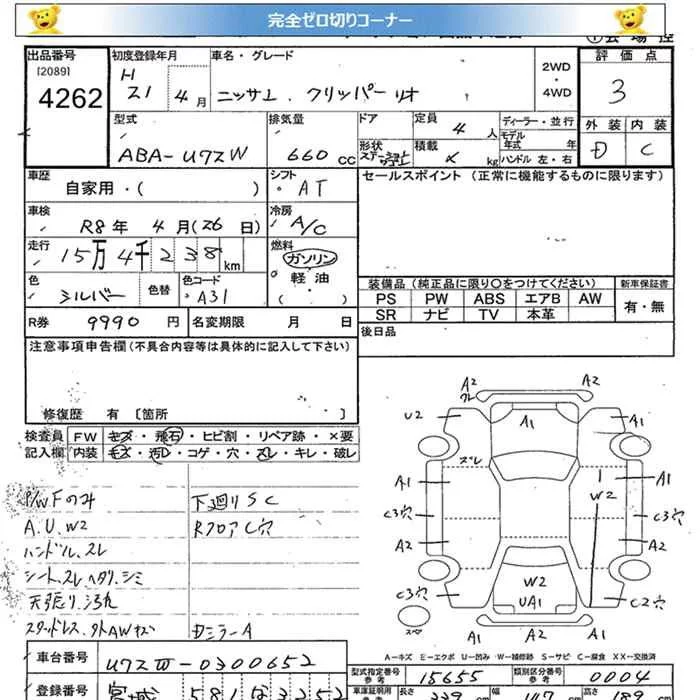 完全ゼロ切りコーナー
出品番号
[2089]
4262
初度登録年月
H 21 4月
車名・グレード
ニッサン. クリッパーリオ
2WD
・
4WD
評価点
3
外装 内装
D C
型式
ABA-U72W
排気量
660 CC
ドア
形状
定員
4 人
積載
kg
ディーラー・並行
モデル
年式 年
ハンドル 左・右
車歴
自家用・( )
シフト
AT
セールスポイント (正常に機能するものに限ります)
車検
R8年 4月(26日)
冷房
A/C
走行
15万4千238km
燃料
ガソリン
軽油
( ・ )
色
シルバー
色替
色コード
A31
装備品 (純正品に限り○をつけてください)
新車保証書
PS PW ABS エアB AW
SR ナビ TV 本革
有・無
R券 9990 円
名変期限 月 日
後日品
注意事項申告欄(不具合内容等は具体的に記入して下さい)
修復歴 有 [箇所 ]
検査員
記入欄
FW キズ・飛石・ヒビ割・リペア跡・×要
内装 キズ・汚レ・コゲ・穴・スレ・キレ・破レ
P/W Fのみ
A.U.W2
ハンドル.スレ
シート.スレ ヘタリ.シミ
天張り.汚れ
スタッドレス.外AWキズ
下廻りSC
RフロアC穴
Dミラー A
A2 A2
クレ
U2 A1 A1
ズレ
A1 1 A1
W2
C3穴 C3穴
A2 A2
W2
C3穴 UA1 C2穴
A1 A2
A1
スペア
A-キズ E-エクボ U-凹み W-補修跡 S-サビ C-腐食 XX-交換済
車台番号
U72W-0300652
登録番号
宮城 581
型式指定番号
参考
15655
類別区分番号
参考
0004
車庫証明用
参考
長さ 339 cm
幅 147 cm
高さ 189 cm